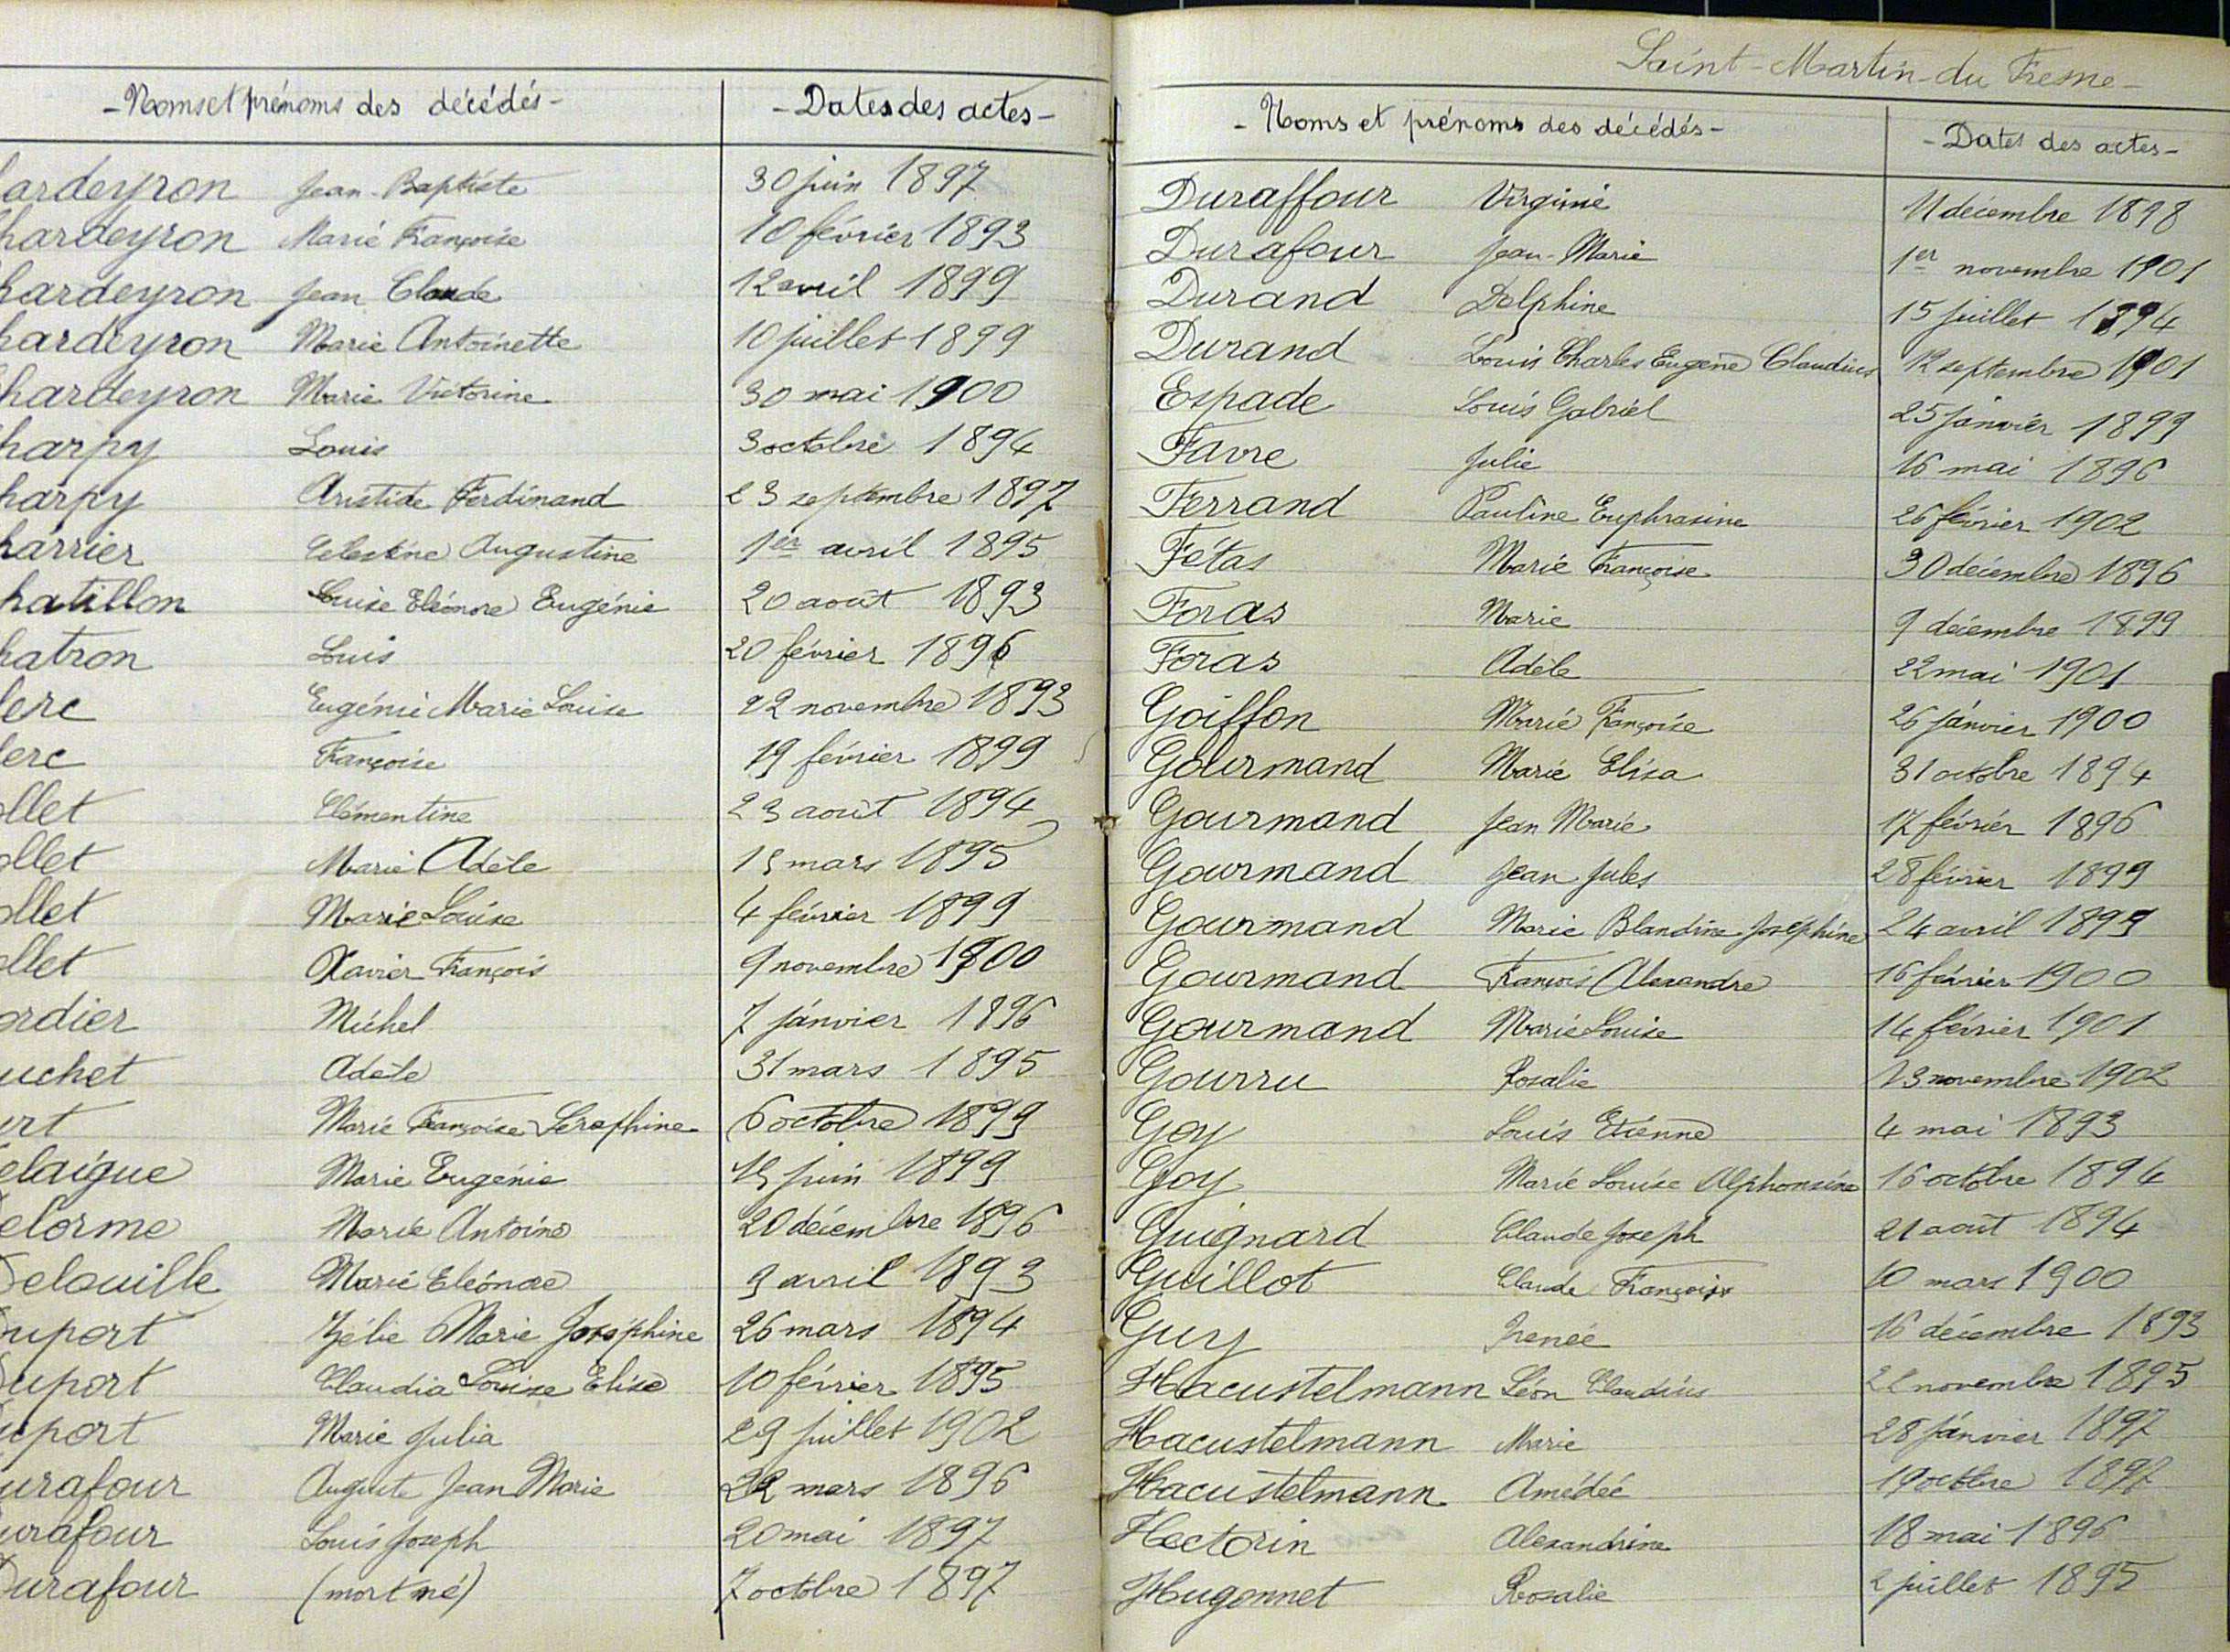 - Noms et prénoms des décédés - - Dates des actes -
ardeyron Jean-Baptiste 30 juin 1897
hardeyron Marie Françoise 10 février 1893
hardeyron Jean Claude 12 avril 1899
hardeyron Marie Antoinette 10 juillet 1899
hardeyron Marie Victorine 30 mai 1900
harpy Louis 3 octobre 1894
harpy Aristide Ferdinand 23 septembre 1897
harrier Celestine Augustine 1er avril 1895
hatillon Louise Eléonore Eugénie 20 août 1893
hatron Louis 20 février 1896
lerc Eugénie Marie Louise 22 novembre 1893
lerc Françoise 19 février 1899
ollet Clémentine 23 août 1894
ollet Marie Adèle mars 1895
ollet Marie Louise 4 février 1899
ollet Xavier François 9 novembre 1900
ordier Michel 7 janvier 1896
uchet Adèle 31 mars 1895
urt Marie Françoise Séraphine 6 octobre 1899
elaigue Marie Eugénie 15 juin 1899
elorme Marie Antoine 20 décembre 1896
Delouille Marie Eléonore 9 avril 1893
uport Zélie Marie Joséphine 26 mars 1894
Duport Claudia Louise Elise 10 février 1895
uport Marie Julia 29 juillet 1902
urafour Auguste Jean Marie 22 mars 1896
urafour Louis Joseph 20 mai 1897
Durafour (mort né) 7 octobre 1897
Saint-Martin-du Fresne -
- Noms et prénoms des décédés - - Dates des actes -
Duraffour Virginie 11 décembre 1898
Durafour Jean-Marie 1er novembre 1901
Durand Delphine 15 juillet 1894
Durand Louis Charles Eugène Claudius 12 septembre 1901
Espade Louis Gabriel 25 janvier 1899
Favre Julie 16 mai 1896
Ferrand Pauline Euphrasine 26 février 1902
Fétas Marie Françoise 30 décembre 1896
Foras Marie 9 décembre 1899
Foras Adèle 22 mai 1901
Goiffon Marie Françoise 26 janvier 1900
Gourmand Marie Elisa 31 octobre 1894
Gourmand Jean Marie 17 février 1896
Gourmand Jean Jules 28 février 1899
Gourmand Marie Blandine Joséphine 24 avril 1899
Gourmand François Alexandre 16 février 1900
Gourmand Marie Louise 14 février 1901
Gourru Rosalie 13 novembre 1902
Goy Louis Etienne 4 mai 1893
Goy Marie Louise Alphonsine 16 octobre 1894
Guignard Claude Joseph 21 août 1894
Guillot Claude François 10 mars 1900
Guy Irenée 16 décembre 1893
Hacustelmann Léon Claudius novembre 1895
Hacustelmann Marie 28 janvier 1897
Hacustelmann Amédée 19 octobre 1897
Hectorin Alexandrine 18 mai 1896
Hugonnet Rosalie 2 juillet 1895